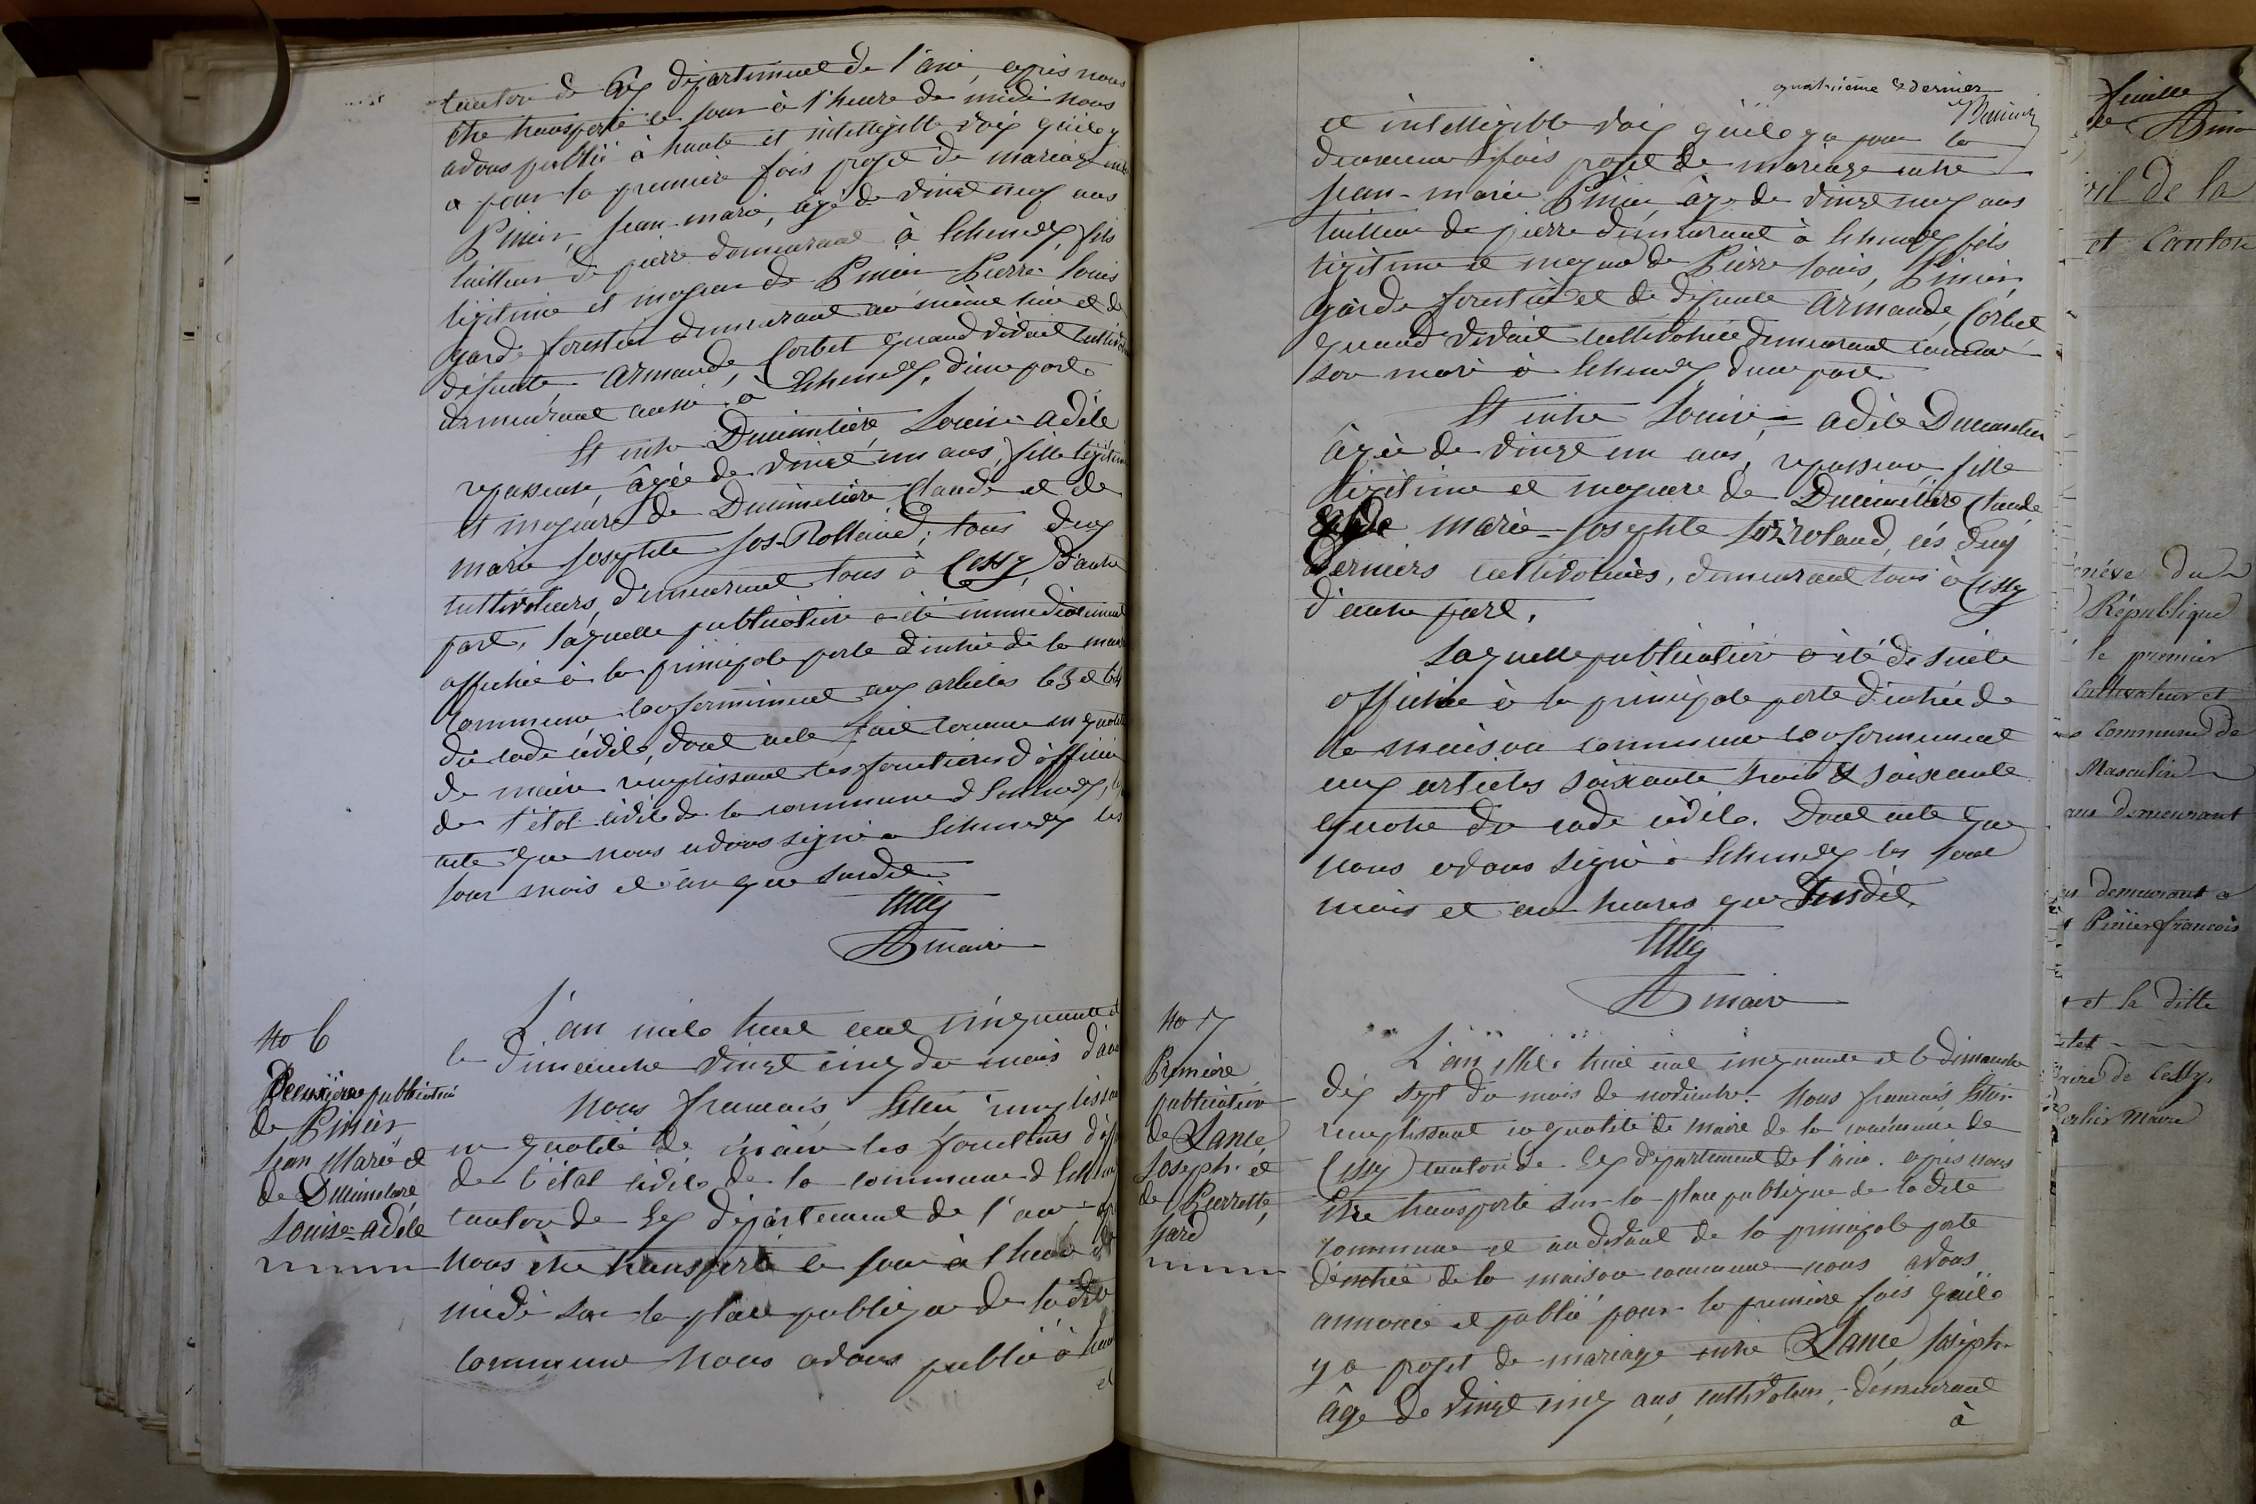 canton de Gex département de l'ain, après nous
être transporté ce jour à l'heure de midi nous
avons publié à haute et intelligible voix qu'il y
a pour la première fois projet de mariage entre
Pinier, Jean-marie, âgé de vingt neuf ans
tailleur de pierre demeurant à Echenevex, fils
légitime et majeur de Pinier Pierre Louis
garde forestier demeurant au même lieu et de
défunte Armande, Corbet quand vivait
demeurant aussi à Echenevex, d'une part
Et entre Ducimetière Louise adèle
repasseuse, âgée de vingt un ans, fille légitime
et majeure de Ducimetière Claude et de
marie Josephte Jos-Rolland, tous deux
cultivateurs, demeurant tous à Cessy, d'autre
part, laquelle publication a été immédiatement
affichée à la principale porte d'entrée de la maison
commune conformément aux articles 63 et 64
du code civile, dont acte fait comme en qualité
de maire remplissant les fonctions d'officier
de l'état civile de la commune d'Echenevex,
acte que nous avons signé à Echenevex les
jour mois et an que susdit
maire
No 6
Deuxième publication
de Pinier
Jean Marie et
de Ducimetière
Louise-adèle
L'an mile huit cent cinquante et
le dimanche vingt cinq du mois d'
Nous francois, remplissant
en qualité de maire les fonctions d'
de l'état civile de la commune d'
canton de Gex département de l'ain
nous être transporté ce jour à l'heure de
midi sur la place publique de la dite
commune Nous avons publié à haute
et
quatrième & dernier
et intelligible voix qu'il y a pour la
deuxieme fois projet de mariage entre
Jean-marie Pinier, âgé de vingt neuf ans
tailleur de pierre demeurant à Echenevex fils
légitime et majeur de Pierre Louis, Pinier
garde forestier et de défunte Armande, Corbet
quand vivait cultivatrice demeurant
son mari à Echenevex d'une part
Et entre Louise-adèle Ducimetière
âgée de vingt un ans, repasseuse fille
légitime et majeure de Ducimetière Claude
et de Marie-Josephte Jos rolland, ces deux
derniers cultivateurs, demeurant tous à Cessy
d'autre part.
Laquelle publication a été de suite
affichée à la principale porte d'entrée de
la maison commune conformement
aux articles soixante trois & soixante
quatre du code civile. Dont acte que
nous avons signé à Echenevex les jour
mois et an heures que susdit.
maire
No 7
Première
publication
de Lance,
Joseph et
de Pierrette,
Jard
L'an Mile huit cent cinquante et le dimanche
dix sept du mois de novembre. Nous francois
remplissant en qualité de maire de la commune de
Cessy canton de Gex département de l'ain. après nous
être transporté sur la place publique de la dite
commune et au devant de la principale porte
d'entrée de la maison commune nous avons
annoncé et publié pour la première fois qu'il
y a projet de mariage entre Lance, Joseph
âgé de vingt cinq ans, cultivateur, demeurant
à
feuille
vil de la
et Canton
enève du
République
le premier
Cultivateur et
commune de
Masculin
ans demeurant
demeurant à
Pinier francois
et la ditte
maire de Cessy
maire